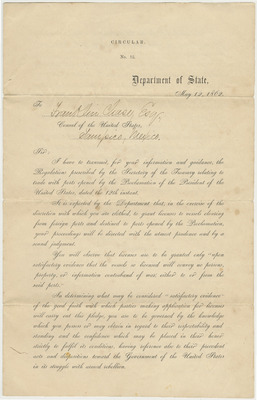 CIRCULAR.
Department of State,
May 12, 1862.
To
Consul of the United States,
Tampico, Mexico.
Sir:
I have to transmit, for your information and guidance, the
Regulations prescribed by the Secretary of the Treasury relating to
trade with ports opened by the Proclamation of the President of the
United States, dated the 12th instant.
It is expected by the Department that, in the exercise of the
discretion with which you are clothed, to grant licenses to vessels clearing
from foreign ports and destined to ports opened by the Proclamation,
your proceedings will be directed with the utmost prudence and by a
sound judgment.
You will observe that licenses are to be granted only "upon
satisfactory evidence that the vessels so licensed will convey no persons,
property, or information contraband of war, either to or from the
said ports."
In determining what may be considered "satisfactory evidence"
of the good faith with which parties making application for licenses
will carry out this pledge, you are to be governed by the knowledge
which you possess or may obtain in regard to their respectability and
standing and the confidence which may be placed in them honestly
strictly to fulfil its conditions, having reference also to their precedent
acts and dispositions toward the Government of the United States
in its struggle with armed rebellion.